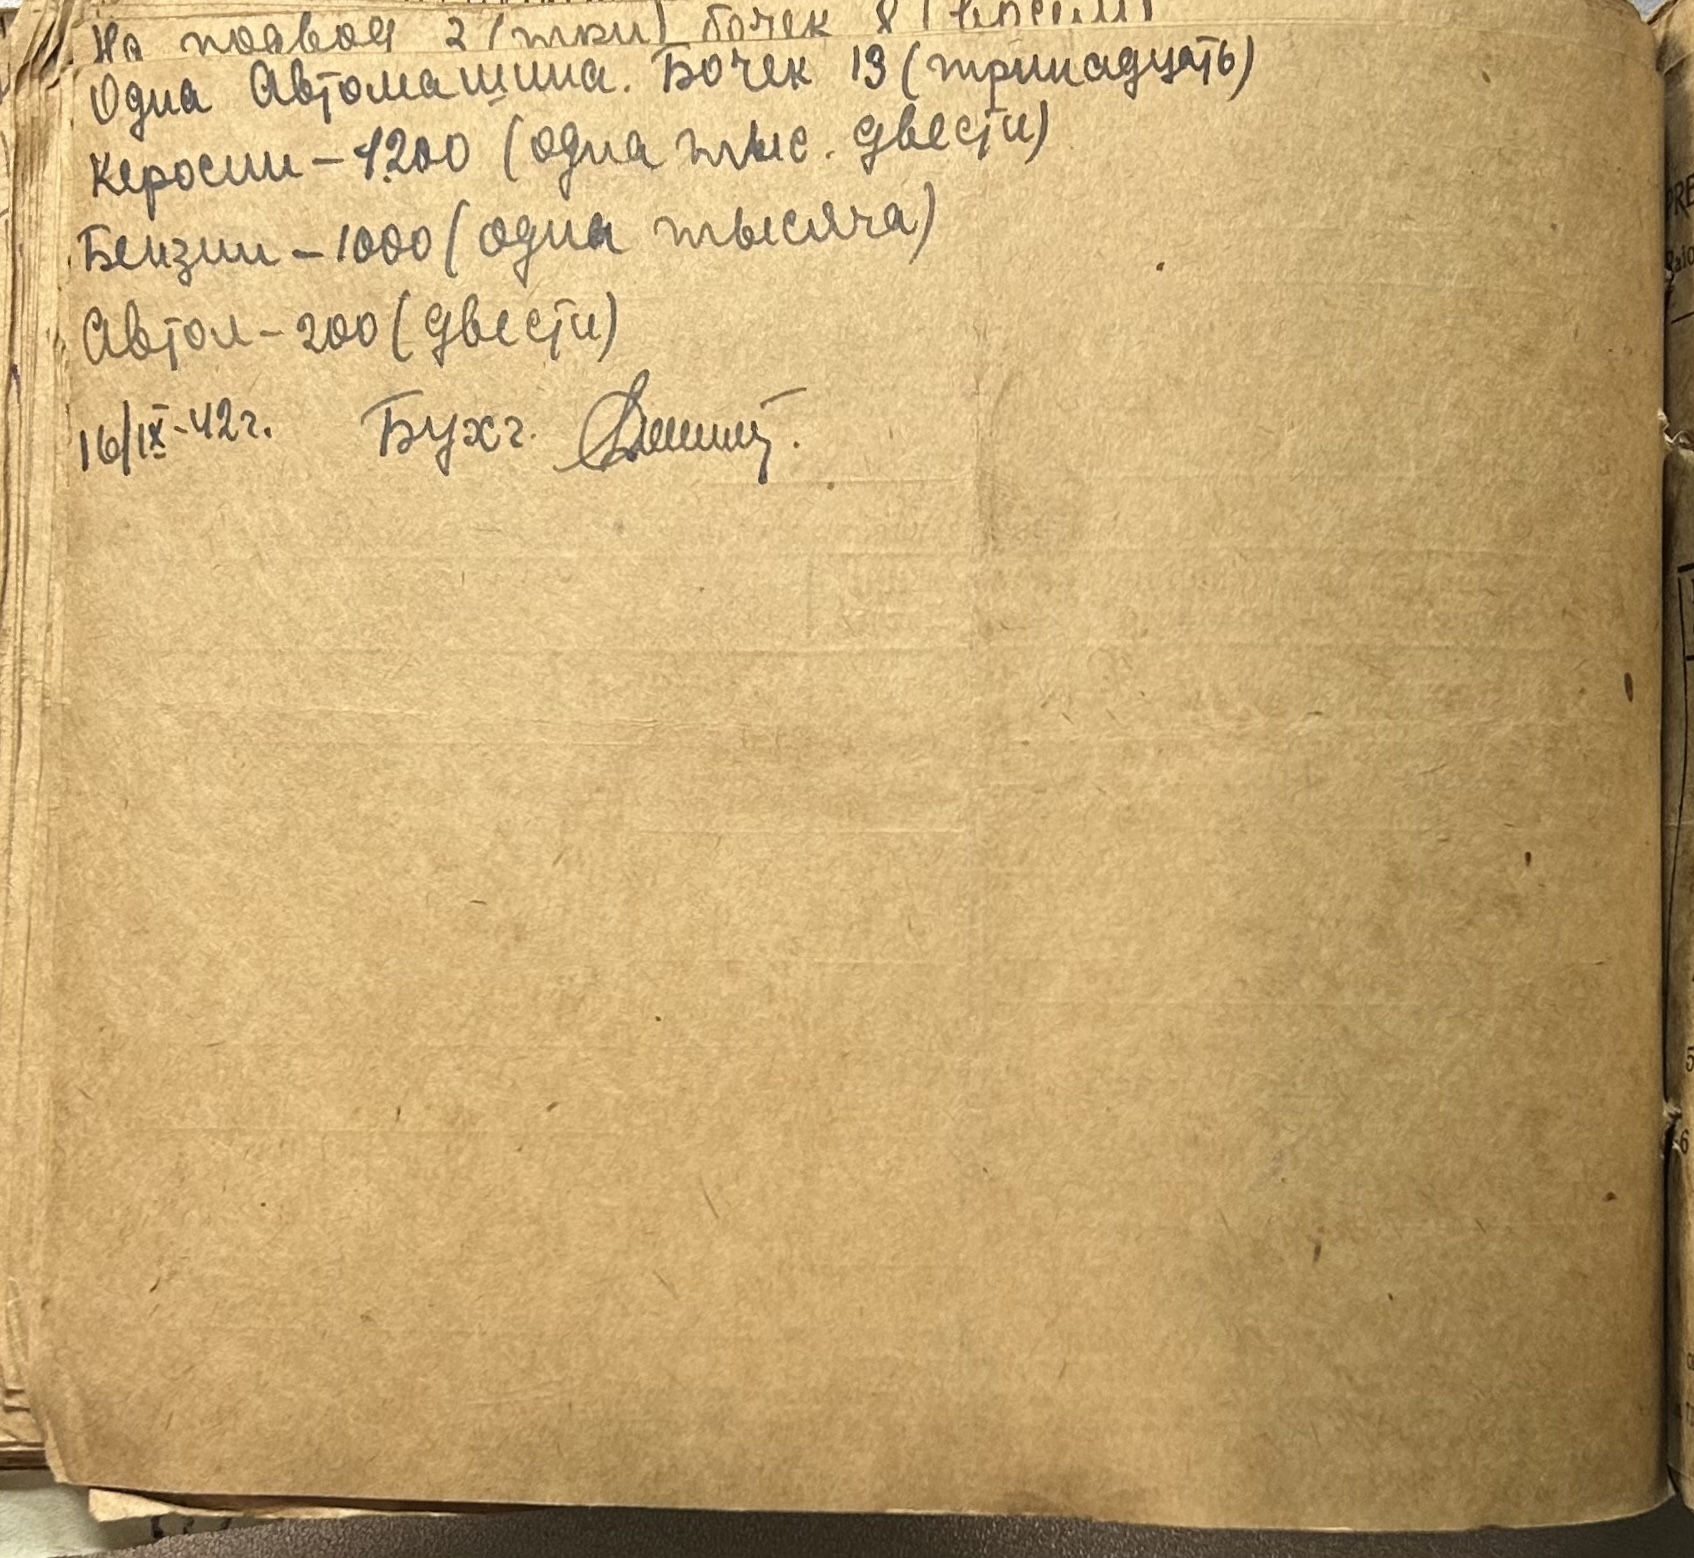 На подвод 3 (три) бочек 8 (восем)
Одна Автомашина. Бочек 13 (тринадцать)
Керосин – 1200 (одна тыс. двести)
Бензин – 1000 (одна тысяча)
Автол – 200 (двести)
16/IX-42г. Бухг.
PRE
Raio
5
6